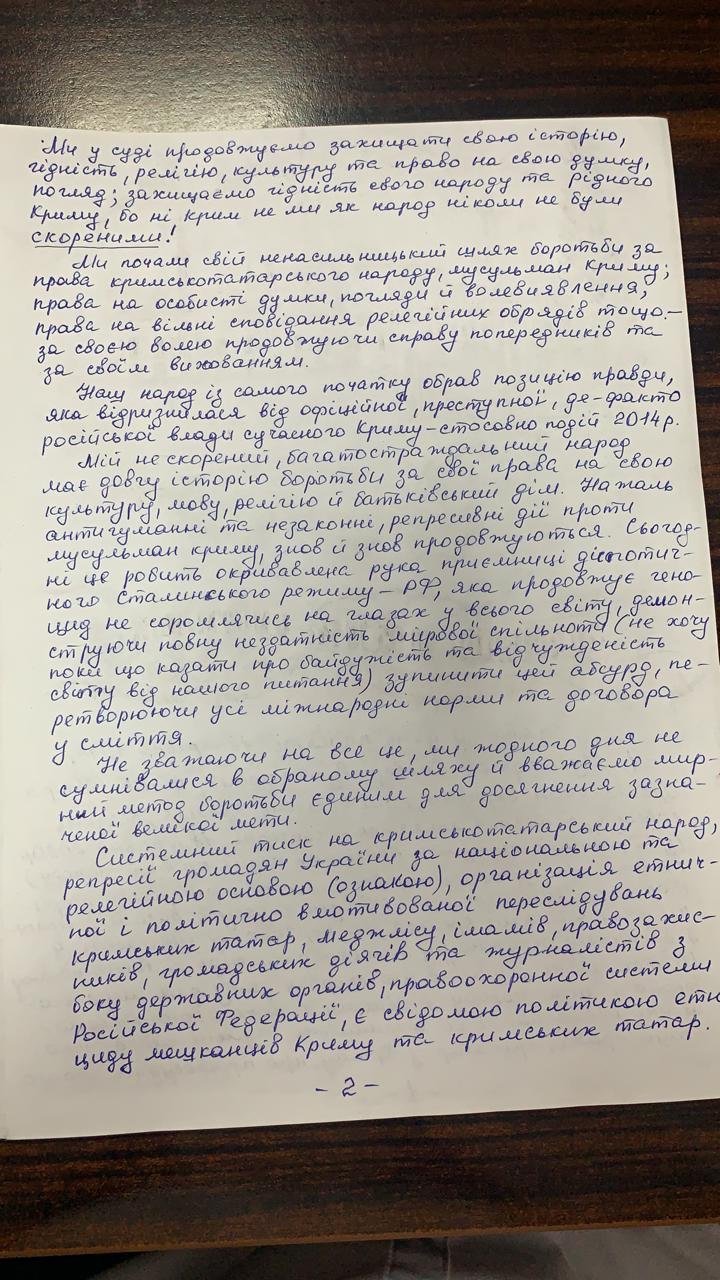 Ми у суді продовжуємо захищати свою історію,
гідність, релігію, культуру та право на свою думку,
погляд; захищаємо гідність свого народу та рідного
Криму, бо ні крим не ми як народ ніколи не були
скореними!
Ми почали свій ненасильницький шлях боротьби за
права кримськотатарського народу, мусульман Криму;
права на особисті думки, погляди й волевиявлення;
права на вільні сповідання релегійних обрядів тощо.–
за своєю волею продовжуючи справу попередників та
за своїм вихованням.
Наш народ із самого початку обрав позицію правди,
яка відризнилася від офіційної, преступної, де-факто
російської влади сучасного Криму – стосовно подій 2014р.
Мій не скорений, багатостраждальний народ
має довгу історію боротьби за свої права на свою
культуру, мову, релігію й батьківський дім. На жаль
антигуманні та незаконні, репресивні дії проти
мусульман криму, знов й знов продовжуються. Сьогод-
ні це робить окривавлена рука приємниці дісготич-
ного Сталинського режиму – РФ, яка продовжує гено-
цид не соромлячись на глазах у всього світу, демон-
струючи повну нездатність мірової спільноти (не хочу
поки що казати про байдужість та відчужденість
світу від нашого питання) зупинити цей абсурд, пе-
ретворюючи усі міжнародні норми та договора
у сміття.
Не зважаючи на все це, ми жодного дня не
сумнівалися в обраному шляху й вважаємо мир-
ний метод боротьби єдиним для досягнення зазна-
ченої великої мети.
Системний тиск на кримськотатарський народ,
репресії громадян України за національною та
релегійною основою (ознакою), організація етнич-
ної і політично вмотивованої переслідувань
кримських татар, меджлісу, імамів, правозахис-
ників, громадських діячів та журналістів з
боку державних органів, правоохоронної системи
Російської Федерації, є свідомою політикою етн
циду мешканців Криму та кримських татар.
– 2 –